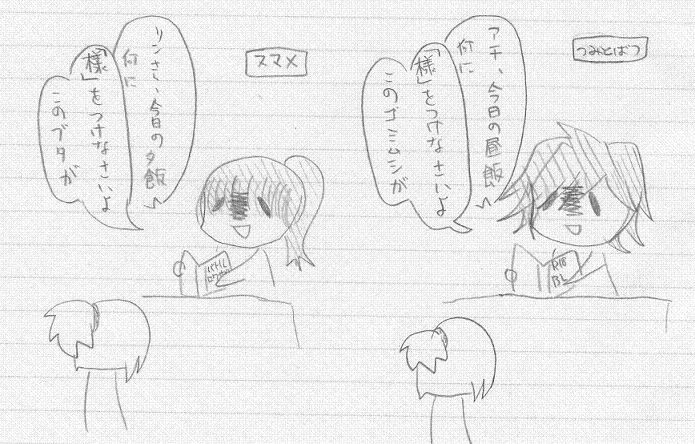 つみとばつ
アチ、今日の昼飯
何に
「様」をつけなさいよ
このゴミムシが
スマメ
リンさー、今日の夕飯
何に
「様」をつけなさいよ
このブタが